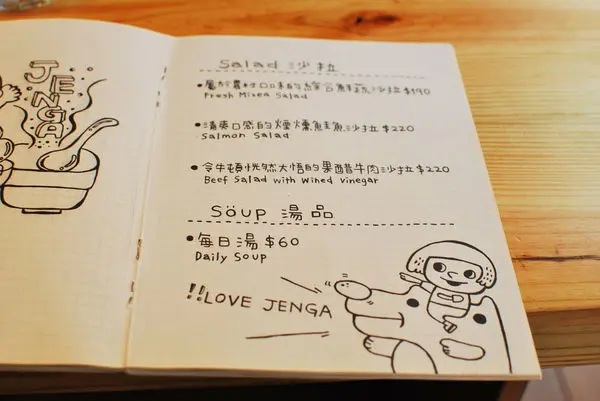 JENGA
Salad 沙拉
•屬於農村口味的綜合鮮蔬沙拉$190
Fresh Mixed Salad
•清爽口感的煙燻鮭魚沙拉$220
Salmon Salad
•令牛頓恍然大悟的果醋牛肉沙拉$220
Beef Salad with Wined Vinegar
Söup 湯品
•每日湯$60
Daily Soup
!!LOVE JENGA